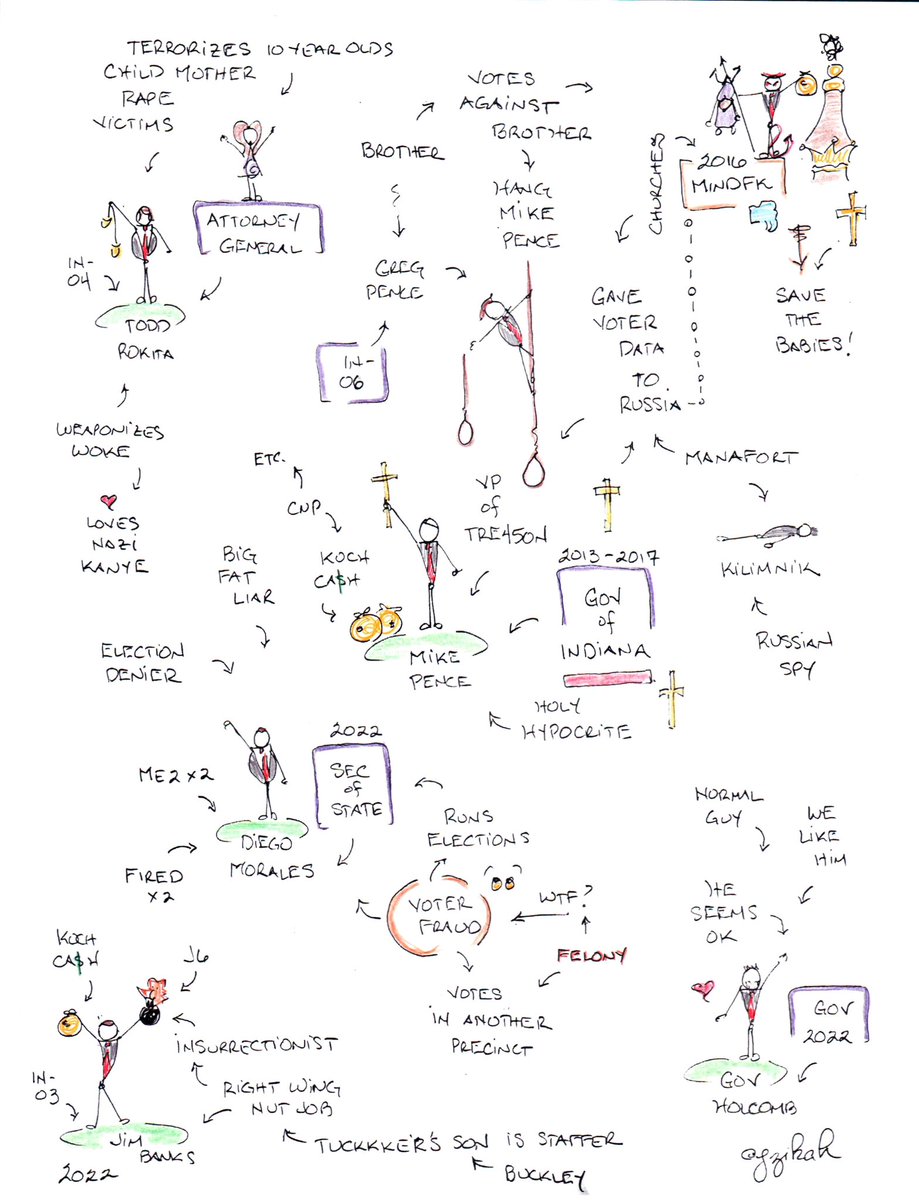 TERRORIZES 10 YEAR OLDS
CHILD MOTHER
RAPE
VICTIMS
ATTORNEY
GENERAL
IN-
04
TODD
ROKITA
WEAPONIZES
WOKE
LOVES
NAZI
KANYE
BROTHER
VOTES
AGAINST
BROTHER
HANG
MIKE
PENCE
GREG
PENCE
IN-
06
CHURCHES
2016
MINDFK
GAVE
VOTER
DATA
TO
RUSSIA
SAVE
THE
BABIES!
MANAFORT
KILIMNIK
RUSSIAN
SPY
ETC.
CNP
KOCH
CA$H
VP
of
TRE45ON
2013-2017
GOV
of
INDIANA
MIKE
PENCE
HOLY
HYPOCRITE
BIG
FAT
LIAR
ELECTION
DENIER
2022
SEC
of
STATE
ME2 x2
DIEGO
MORALES
FIRED
x2
RUNS
ELECTIONS
VOTER
FRAUD
WTF?
FELONY
VOTES
IN ANOTHER
PRECINCT
NORMAL
GUY
WE
LIKE
HIM
HE
SEEMS
OK
GOV
2022
GOV
HOLCOMB
KOCH
CA$H
J6
INSURRECTIONIST
RIGHT WING
NUT JOB
IN-
03
JIM
BANKS
2022
TUCKKKER'S SON IS STAFFER
BUCKLEY
@gzikah